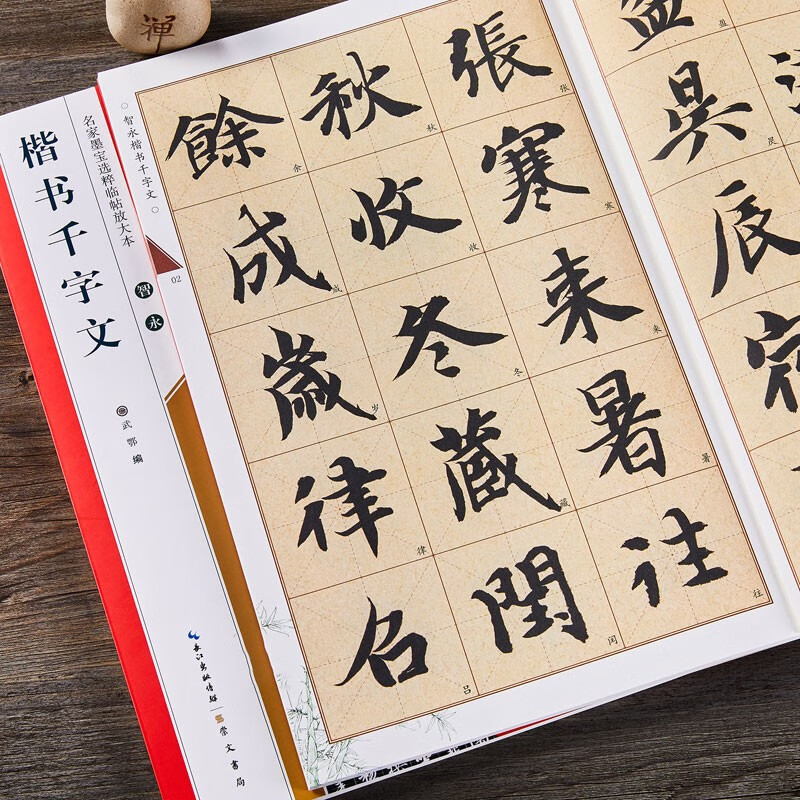 禅
楷书千字文
名家墨宝选粹临帖放大本
智永
武鄂 编
长江出版传媒
崇文书局
智永楷书千字文
02
張寒来暑往
张寒来暑往
秋收冬藏閏
秋收冬藏闰
餘成歲律召
余成岁律吕
盈昃辰宿
盈昃